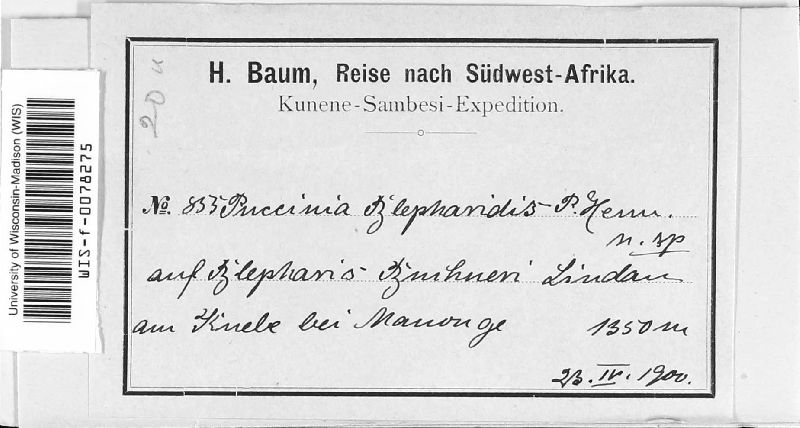 20 u
H. Baum, Reise nach Südwest-Afrika.
Kunene-Sambesi-Expedition.
№. 855 Puccinia Blepharidis P. Henn.
n. sp
auf Blepharis Buchneri Lindau
am Kuebe bei Manonge 1350 m
23. IV. 1900.
University of Wisconsin-Madison (WIS)
WIS-f-0078275